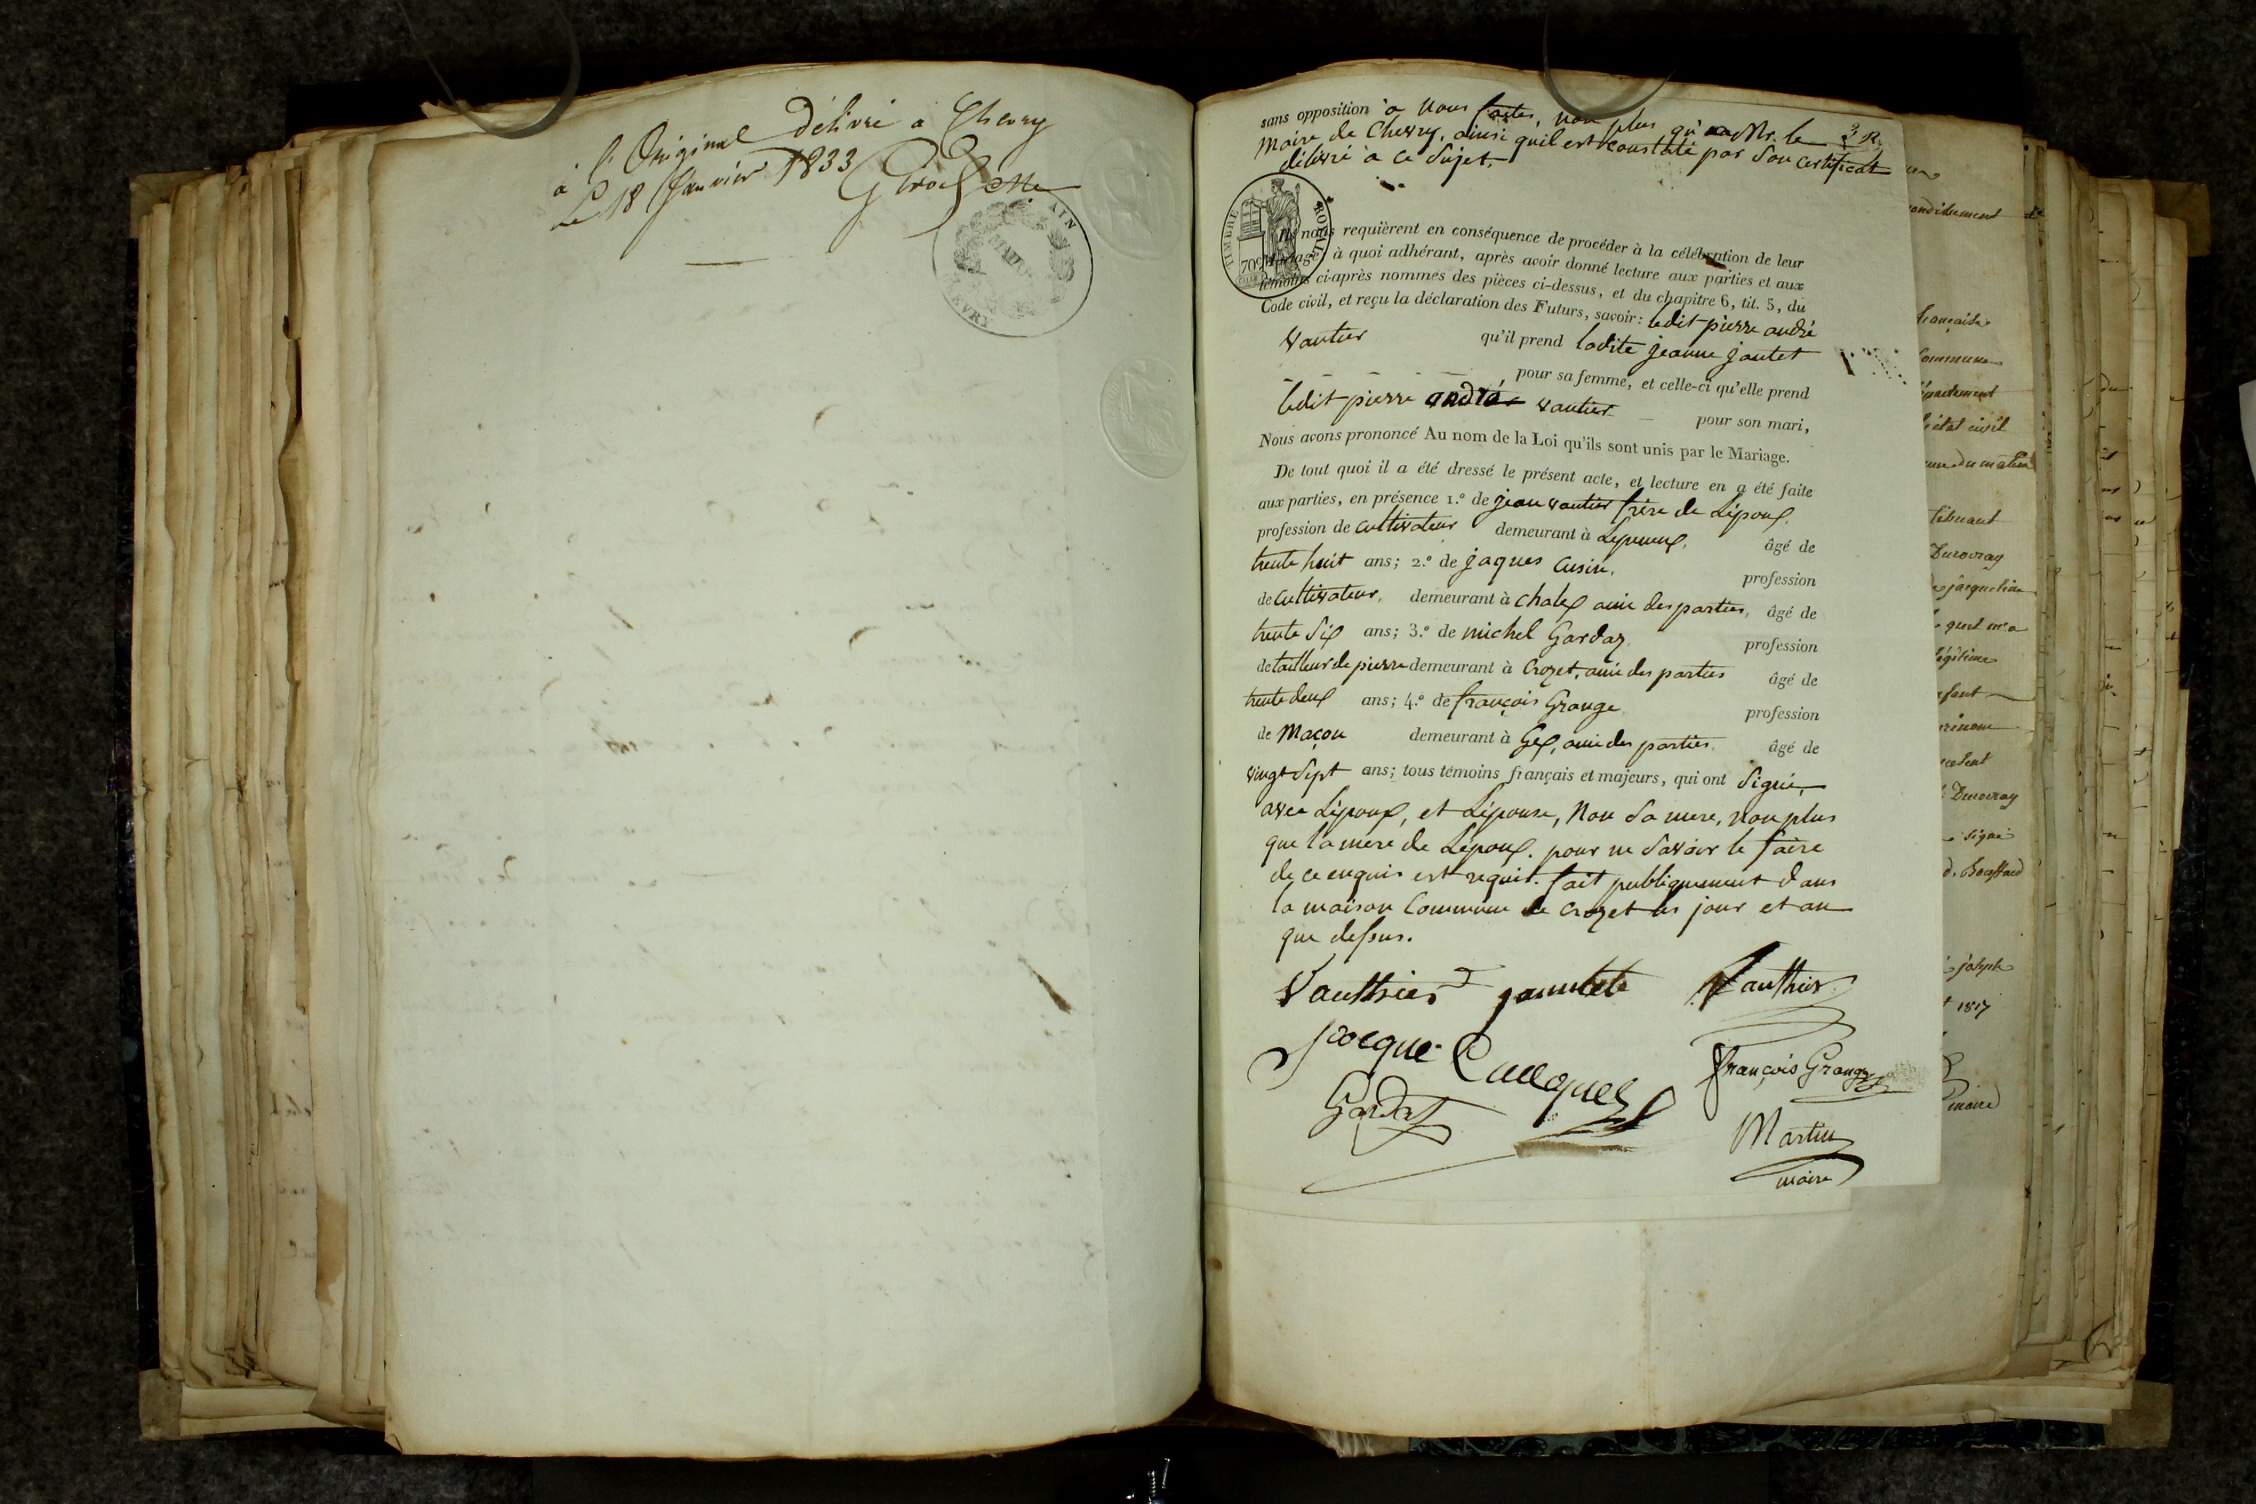 à l'Original Délivré à Chevry
Le 18 Janvier 1833
AIN
MAIRIE
CHEVRY
3 R.
sans opposition à nous faites, non plus qu'à Mr. le
Maire de Chevry, ainsi qu'il est constaté par son certificat
délivré à ce sujet.
TIMBRE ROYAL
70 c
Ils nous requièrent en conséquence de procéder à la célébration de leur
Mariage; à quoi adhérant, après avoir donné lecture aux parties et aux
témoins ci-après nommés des pièces ci-dessus, et du chapitre 6, tit. 5, du
Code civil, et reçu la déclaration des Futurs, savoir: ledit pierre andré
Vautier qu'il prend ladite jeanne jautet
pour sa femme, et celle-ci qu'elle prend
ledit pierre andré vautier pour son mari,
Nous avons prononcé Au nom de la Loi qu'ils sont unis par le Mariage.
De tout quoi il a été dressé le présent acte, et lecture en a été faite
aux parties, en présence 1.º de jean vautier frère de Lépoux,
profession de cultivateur demeurant à âgé de
trente huit ans; 2.º de jaques cusin, profession
de cultivateur, demeurant à chalex amie des parties, âgé de
trente six ans; 3.º de michel Garday profession
de tailleur de pierre demeurant à Crozet, amie des parties âgé de
trente deux ans; 4.º de françois Grange profession
de Maçon demeurant à Gex, amie des parties. âgé de
vingt sept ans; tous témoins français et majeurs, qui ont signé,
avec Lépoux, et Lépouse, Non sa mere, non plus
que la mere de Lépoux. pour ne savoir le faire
de ce enquis est requit. fait publiquement dans
la maison Commune de Crozet les jour et an
que dessus.
Vauthier jauntet Vauthier
Jacque
François Grange
Gardat
Martin
maire
française
Commune
département
l'état civil
Durovray
jacqueline
légitime
Durovray
signé
joseph
1817
maire